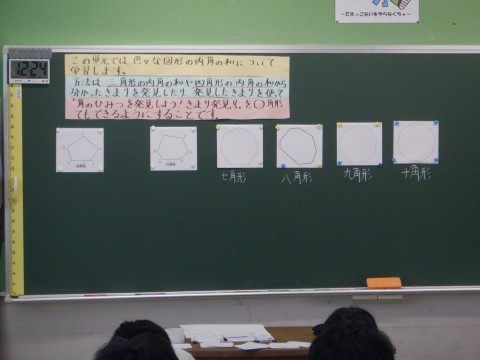 ～でさっこないをやらなくちゃ～
12:24
この単元では、色々な図形の内角の和について
学習します。
方法は、三角形の内角の和や四角形の内角の和から
分かったきまりを発見したり、発見したきまりを使って
「角のひみつを発見しよう!きまり発見!」を〇角形
でもできるようにすることです。
七角形
八角形
九角形
十角形